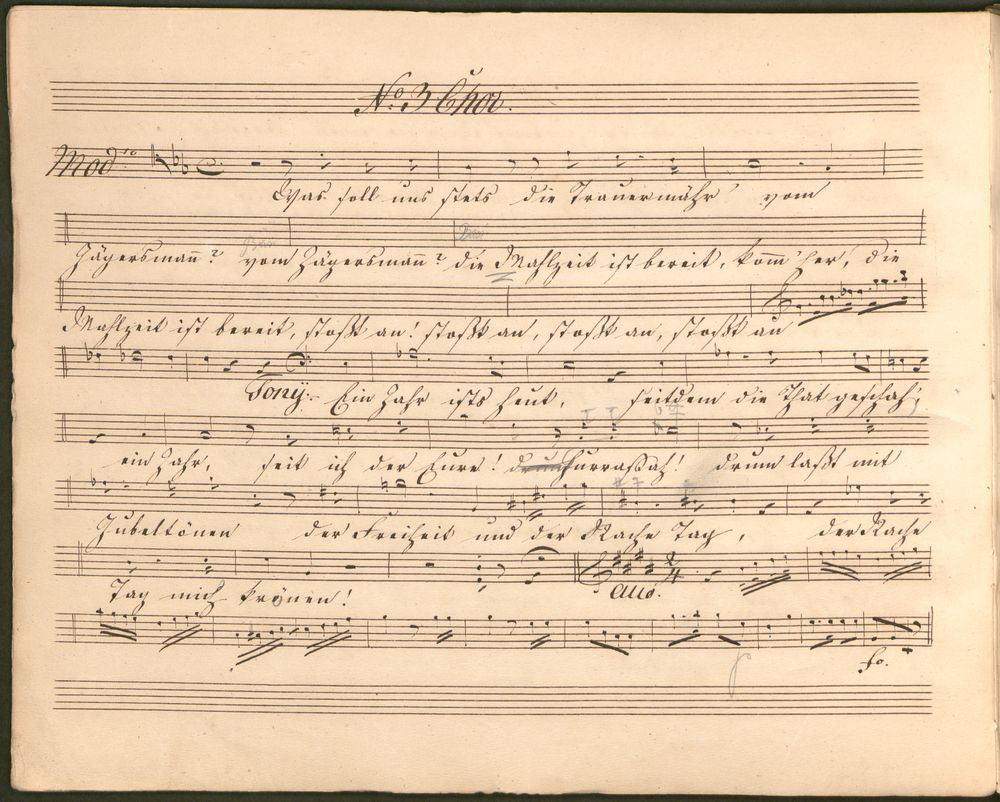 No. 3 Chor.
Modto
Was soll uns stets die Trauermähr vom
Jägersmañ? vom Jägersmañ? die Mahlzeit ist bereit, kom̃ her, die
Mahlzeit ist bereit, stoßt an! stoßt an, stoßt an, stoßt an
Tony: Ein Jahr ists heut, seitdem die That geschah,
ein Jahr, seit ich der Eure! hurraßah! drum laßt mit
Jubeltönen der Freiheit und der Rache Tag, der Rache
Tag mich krönen!
Allo.
fo.